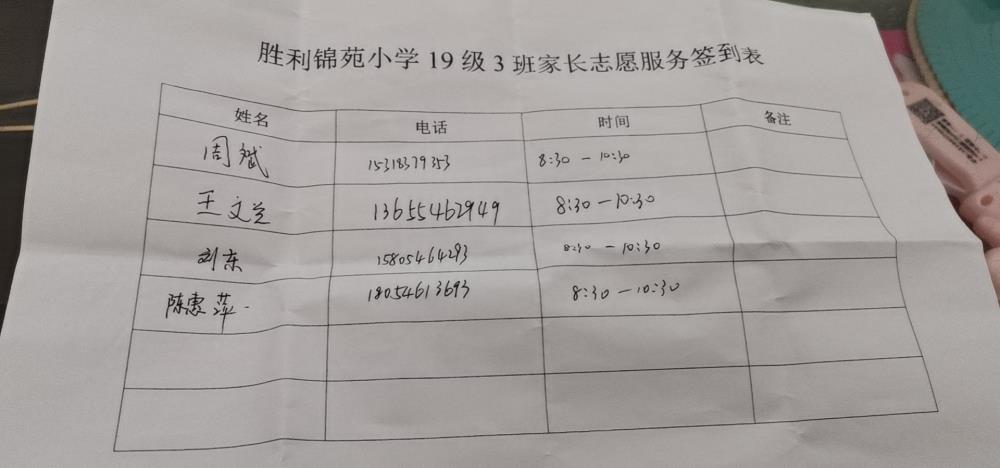 胜利锦苑小学19级3班家长志愿服务签到表
姓名 电话 时间 备注
周斌 15318379353 8:30 — 10:30
王文兰 13655462949 8:30 — 10:30
刘东 15805464293 8:30 — 10:30
陈惠萍 18054613693 8:30 — 10:30